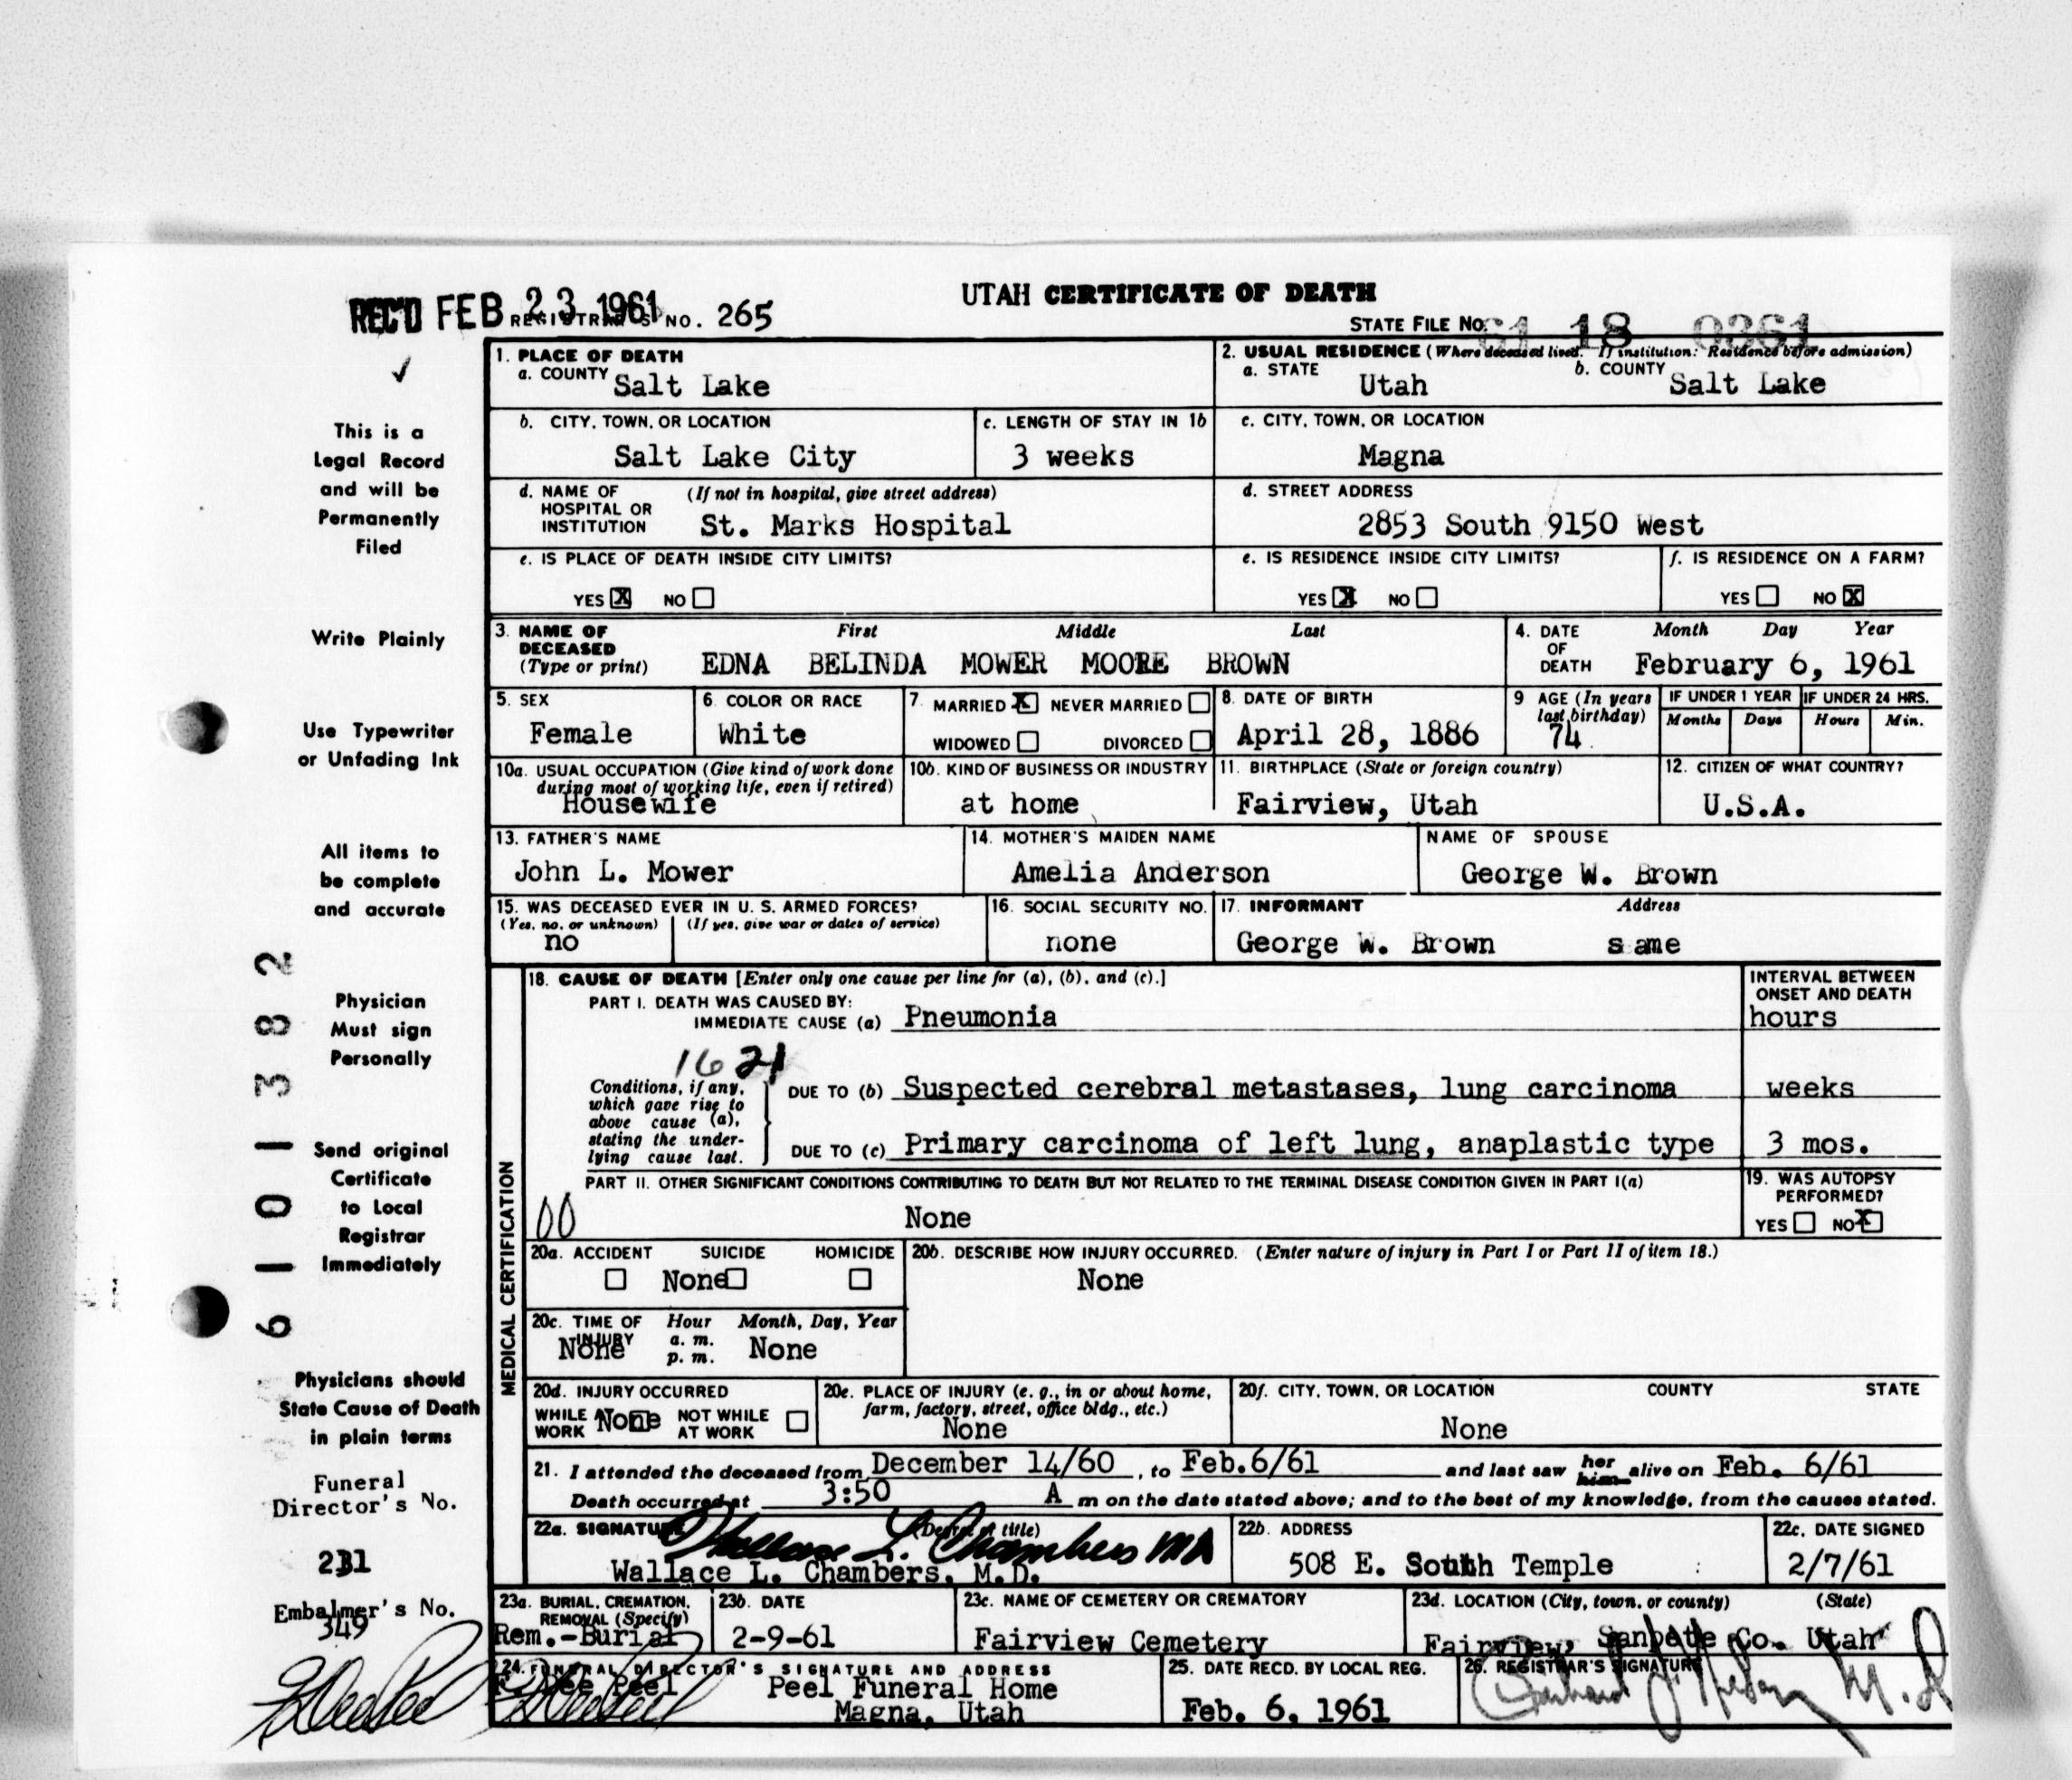 UTAH CERTIFICATE OF DEATH
REC'D FEB 23 1961 REGISTRAR'S NO. 265
STATE FILE NO. 61 18 0361
✓
This is a
Legal Record
and will be
Permanently
Filed
Write Plainly
Use Typewriter
or Unfading Ink
All items to
be complete
and accurate
Physician
Must sign
Personally
Send original
Certificate
to Local
Registrar
Immediately
Physicians should
State Cause of Death
in plain terms
Funeral
Director's No.
231
Embalmer's No.
349
6 1 0 1 3 8 2
1. PLACE OF DEATH
a. COUNTY Salt Lake
2. USUAL RESIDENCE (Where deceased lived. If institution: Residence before admission)
a. STATE Utah b. COUNTY Salt Lake
b. CITY, TOWN, OR LOCATION Salt Lake City
c. LENGTH OF STAY IN 1b 3 weeks
c. CITY, TOWN, OR LOCATION Magna
d. NAME OF HOSPITAL OR INSTITUTION (If not in hospital, give street address) St. Marks Hospital
d. STREET ADDRESS 2853 South 9150 West
e. IS PLACE OF DEATH INSIDE CITY LIMITS?
YES X NO
e. IS RESIDENCE INSIDE CITY LIMITS?
YES X NO
f. IS RESIDENCE ON A FARM?
YES NO X
3. NAME OF DECEASED (Type or print) First Middle Last
EDNA BELINDA MOWER MOORE BROWN
4. DATE OF DEATH Month Day Year
February 6, 1961
5. SEX Female
6. COLOR OR RACE White
7. MARRIED X NEVER MARRIED
WIDOWED DIVORCED
8. DATE OF BIRTH April 28, 1886
9 AGE (In years last birthday) 74
IF UNDER 1 YEAR Months Days
IF UNDER 24 HRS. Hours Min.
10a. USUAL OCCUPATION (Give kind of work done during most of working life, even if retired) Housewife
10b. KIND OF BUSINESS OR INDUSTRY at home
11. BIRTHPLACE (State or foreign country) Fairview, Utah
12. CITIZEN OF WHAT COUNTRY? U.S.A.
13. FATHER'S NAME John L. Mower
14. MOTHER'S MAIDEN NAME Amelia Anderson
NAME OF SPOUSE George W. Brown
15. WAS DECEASED EVER IN U. S. ARMED FORCES?
(Yes, no, or unknown) no (If yes, give war or dates of service)
16. SOCIAL SECURITY NO. none
17. INFORMANT George W. Brown Address same
MEDICAL CERTIFICATION
18. CAUSE OF DEATH [Enter only one cause per line for (a), (b), and (c).]
INTERVAL BETWEEN ONSET AND DEATH
PART I. DEATH WAS CAUSED BY:
IMMEDIATE CAUSE (a) Pneumonia hours
1621
Conditions, if any, which gave rise to above cause (a), stating the underlying cause last.
DUE TO (b) Suspected cerebral metastases, lung carcinoma weeks
DUE TO (c) Primary carcinoma of left lung, anaplastic type 3 mos.
PART II. OTHER SIGNIFICANT CONDITIONS CONTRIBUTING TO DEATH BUT NOT RELATED TO THE TERMINAL DISEASE CONDITION GIVEN IN PART I(a)
00 None
19. WAS AUTOPSY PERFORMED?
YES NO X
20a. ACCIDENT SUICIDE HOMICIDE
None
20b. DESCRIBE HOW INJURY OCCURRED. (Enter nature of injury in Part I or Part II of item 18.)
None
20c. TIME OF INJURY Hour a. m. p. m. Month, Day, Year
None None
20d. INJURY OCCURRED
WHILE AT WORK None NOT WHILE AT WORK
20e. PLACE OF INJURY (e. g., in or about home, farm, factory, street, office bldg., etc.)
None
20f. CITY, TOWN, OR LOCATION COUNTY STATE
None
21. I attended the deceased from December 14/60, to Feb.6/61 and last saw her him alive on Feb. 6/61
Death occurred at 3:50 A m on the date stated above; and to the best of my knowledge, from the causes stated.
22a. SIGNATURE (Degree or title)
Wallace L. Chambers MD
Wallace L. Chambers, M.D.
22b. ADDRESS 508 E. South Temple
22c. DATE SIGNED 2/7/61
23a. BURIAL, CREMATION, REMOVAL (Specify) Rem.-Burial
23b. DATE 2-9-61
23c. NAME OF CEMETERY OR CREMATORY Fairview Cemetery
23d. LOCATION (City, town, or county) (State)
Fairview, Sanpete Co. Utah
24. FUNERAL DIRECTOR'S SIGNATURE AND ADDRESS
Dee Peel Peel Funeral Home
Magna, Utah
25. DATE RECD. BY LOCAL REG. Feb. 6, 1961
26. REGISTRAR'S SIGNATURE
M.D